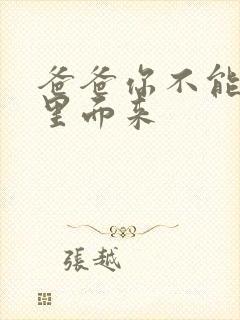 爸爸你不能
里而来
張越